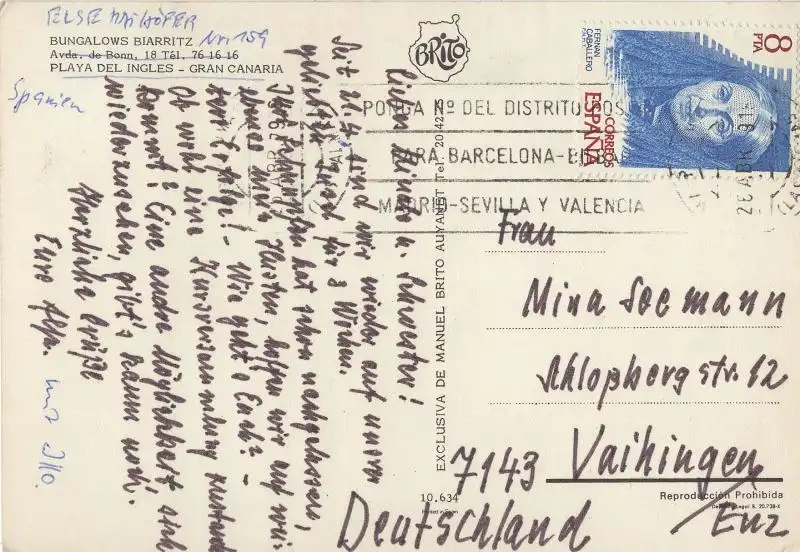 ELSE
BUNGALOWS BIARRITZ Nr. 159
Avda. de Bonn, 18 Tél. 76 16 16
PLAYA DEL INGLES - GRAN CANARIA
Spanien
BRITO
8
PTA
FERNAN
CABALLERO
CORREOS
ESPAÑA
PONGA Nº DEL DISTRITO POSTAL
PARA BARCELONA-BILBAO
MADRID-SEVILLA Y VALENCIA
u. Schwester!
Seit 21.4. sind wir wieder auf unserer
Insel für 3 Wochen.
hat schon nachgelassen,
Husten, hoffen wir auf wei-
teren Erfolg! - Wie geht's Euch? -
Ob wohl eine Kursversammlung zustande
kommt? Eine andre Möglichkeit, sich
wiederzusehen, gibt's kaum noch.
Herzliche Grüße
Eure
EXCLUSIVA DE MANUEL BRITO AUYANET Tel. 20 42 75
Frau
Mina Seemann
Schlossbergstr. 12
7143 Vaihingen
/Enz
Deutschland
10.634
Printed in Spain
Reproducción Prohibida